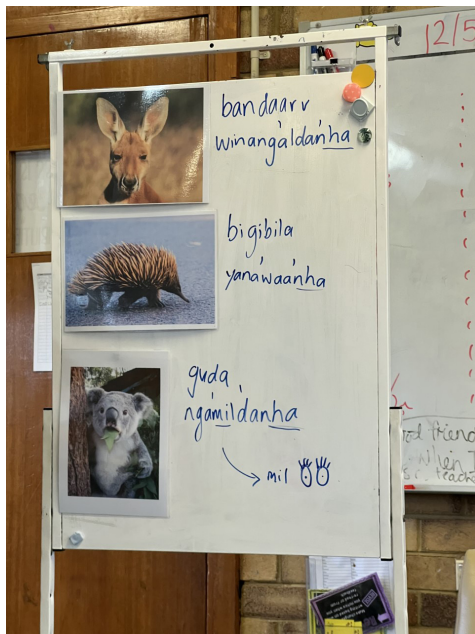 12/5
bandaarr
winangáldańha
bigibila
yanáwaáńha
guda
ngámildanha
mil